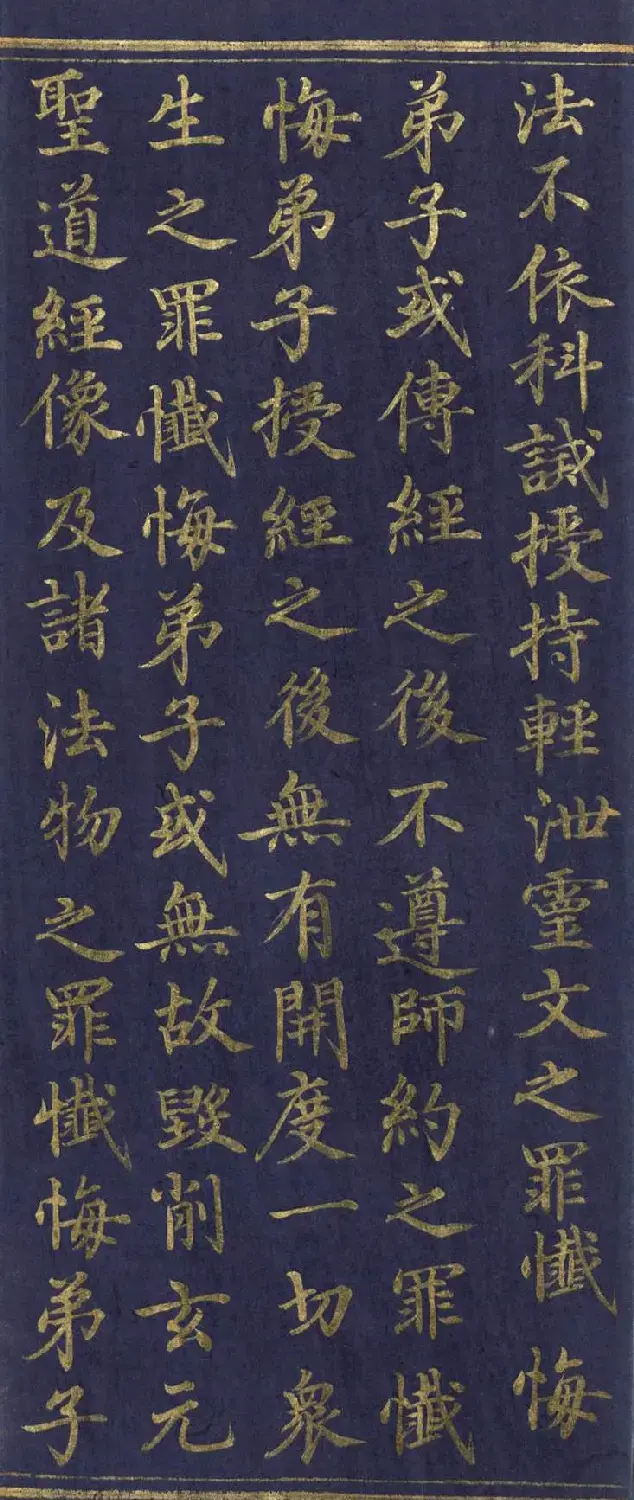 法不依科誡授持輕泄靈文之罪懺悔
弟子或傳經之後不遵師約之罪懺
悔弟子授經之後無有開度一切衆
生之罪懺悔弟子或無故毀削玄元
聖道經像及諸法物之罪懺悔弟子